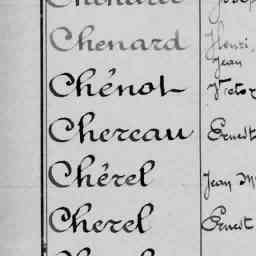 Chenard Henri,
Jean
Chénot Victor
Chereau Ernest
Chérel Jean M
Cherel Ernest